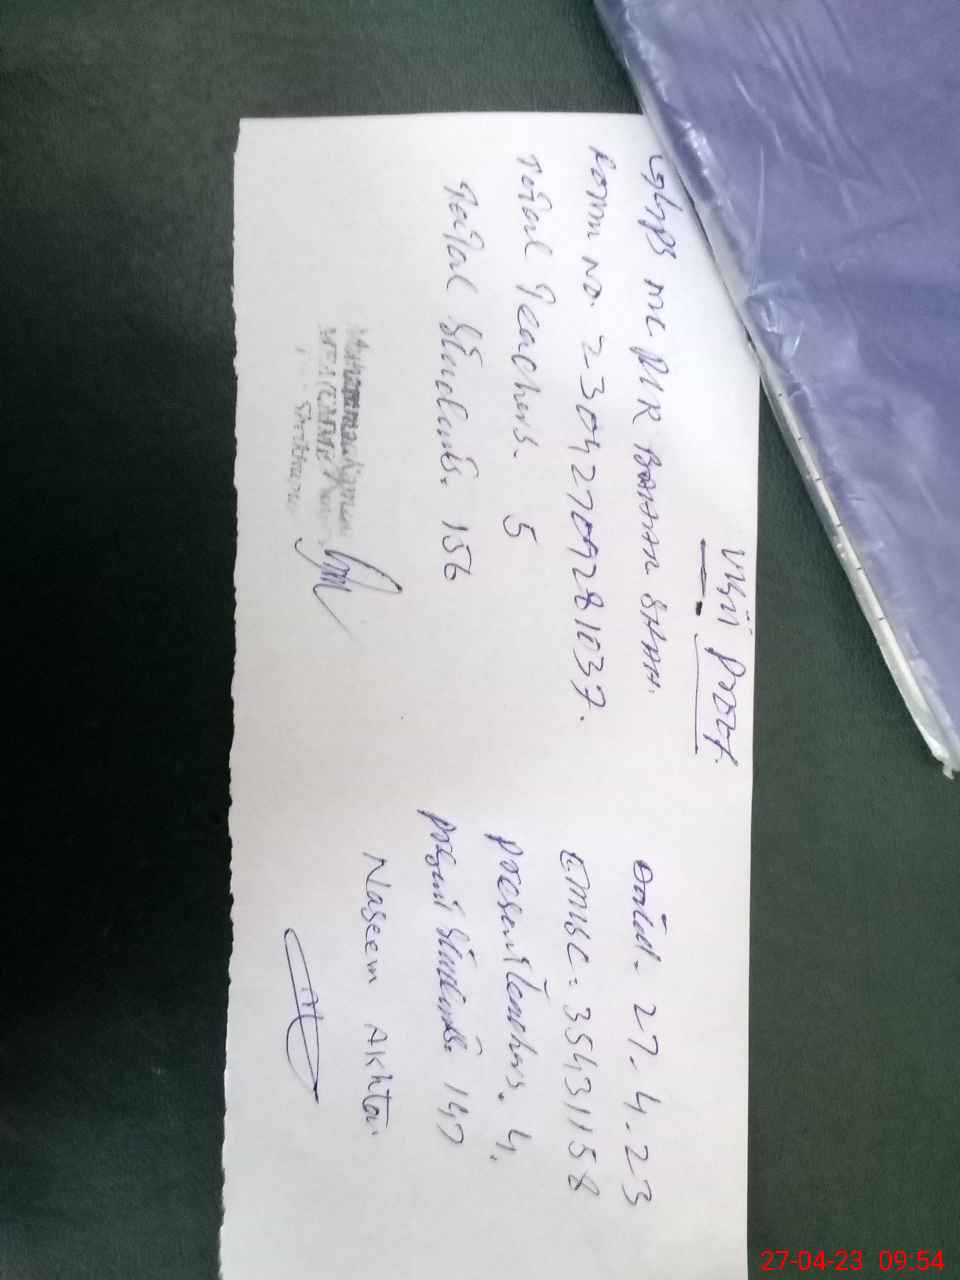 Visit Proof.
GGPS MC PIR BOKHAR SHAH. Dated. 27.4.23
Form no. 23042709281037. EMISC = 35431158
Total Teachers. 5 present Teachers. 4.
Total Students. 156 present Students. 147
Naseem Akhtar
27-04-23 09:54